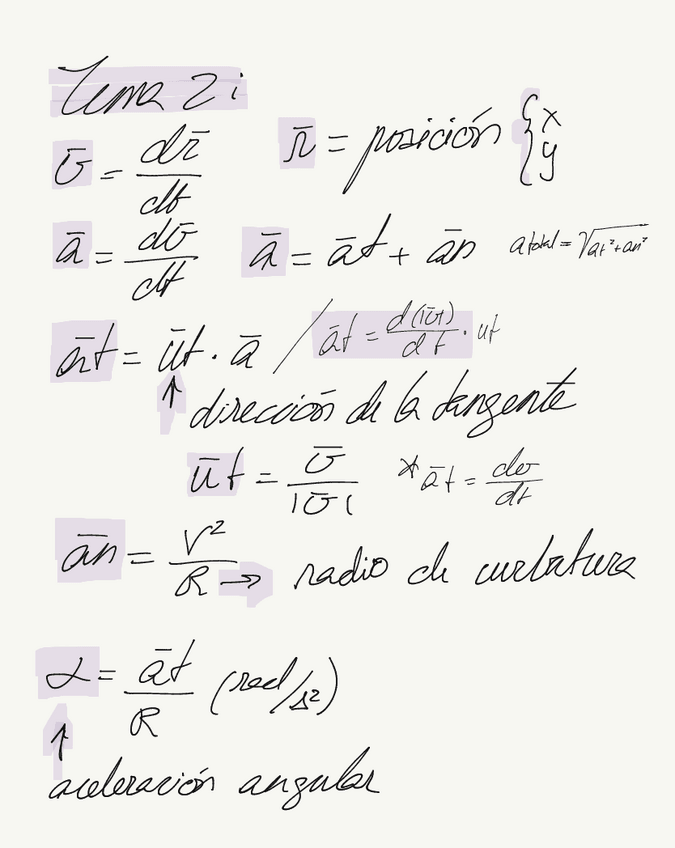 Tema 2:
v̄ = dr̄/dt   r̄ = posición { x y
ā = dv̄/dt   ā = āt + ān   a total = √(at² + an²)
āt = ūt · ā / āt = d(|v̄t|)/dt · ut
↑ dirección de la tangente
ūt = v̄/|v̄|   * āt = dv/dt
ān = V²/R → radio de curbatura
α = āt/R (rad/s²)
↑
aceleración angular